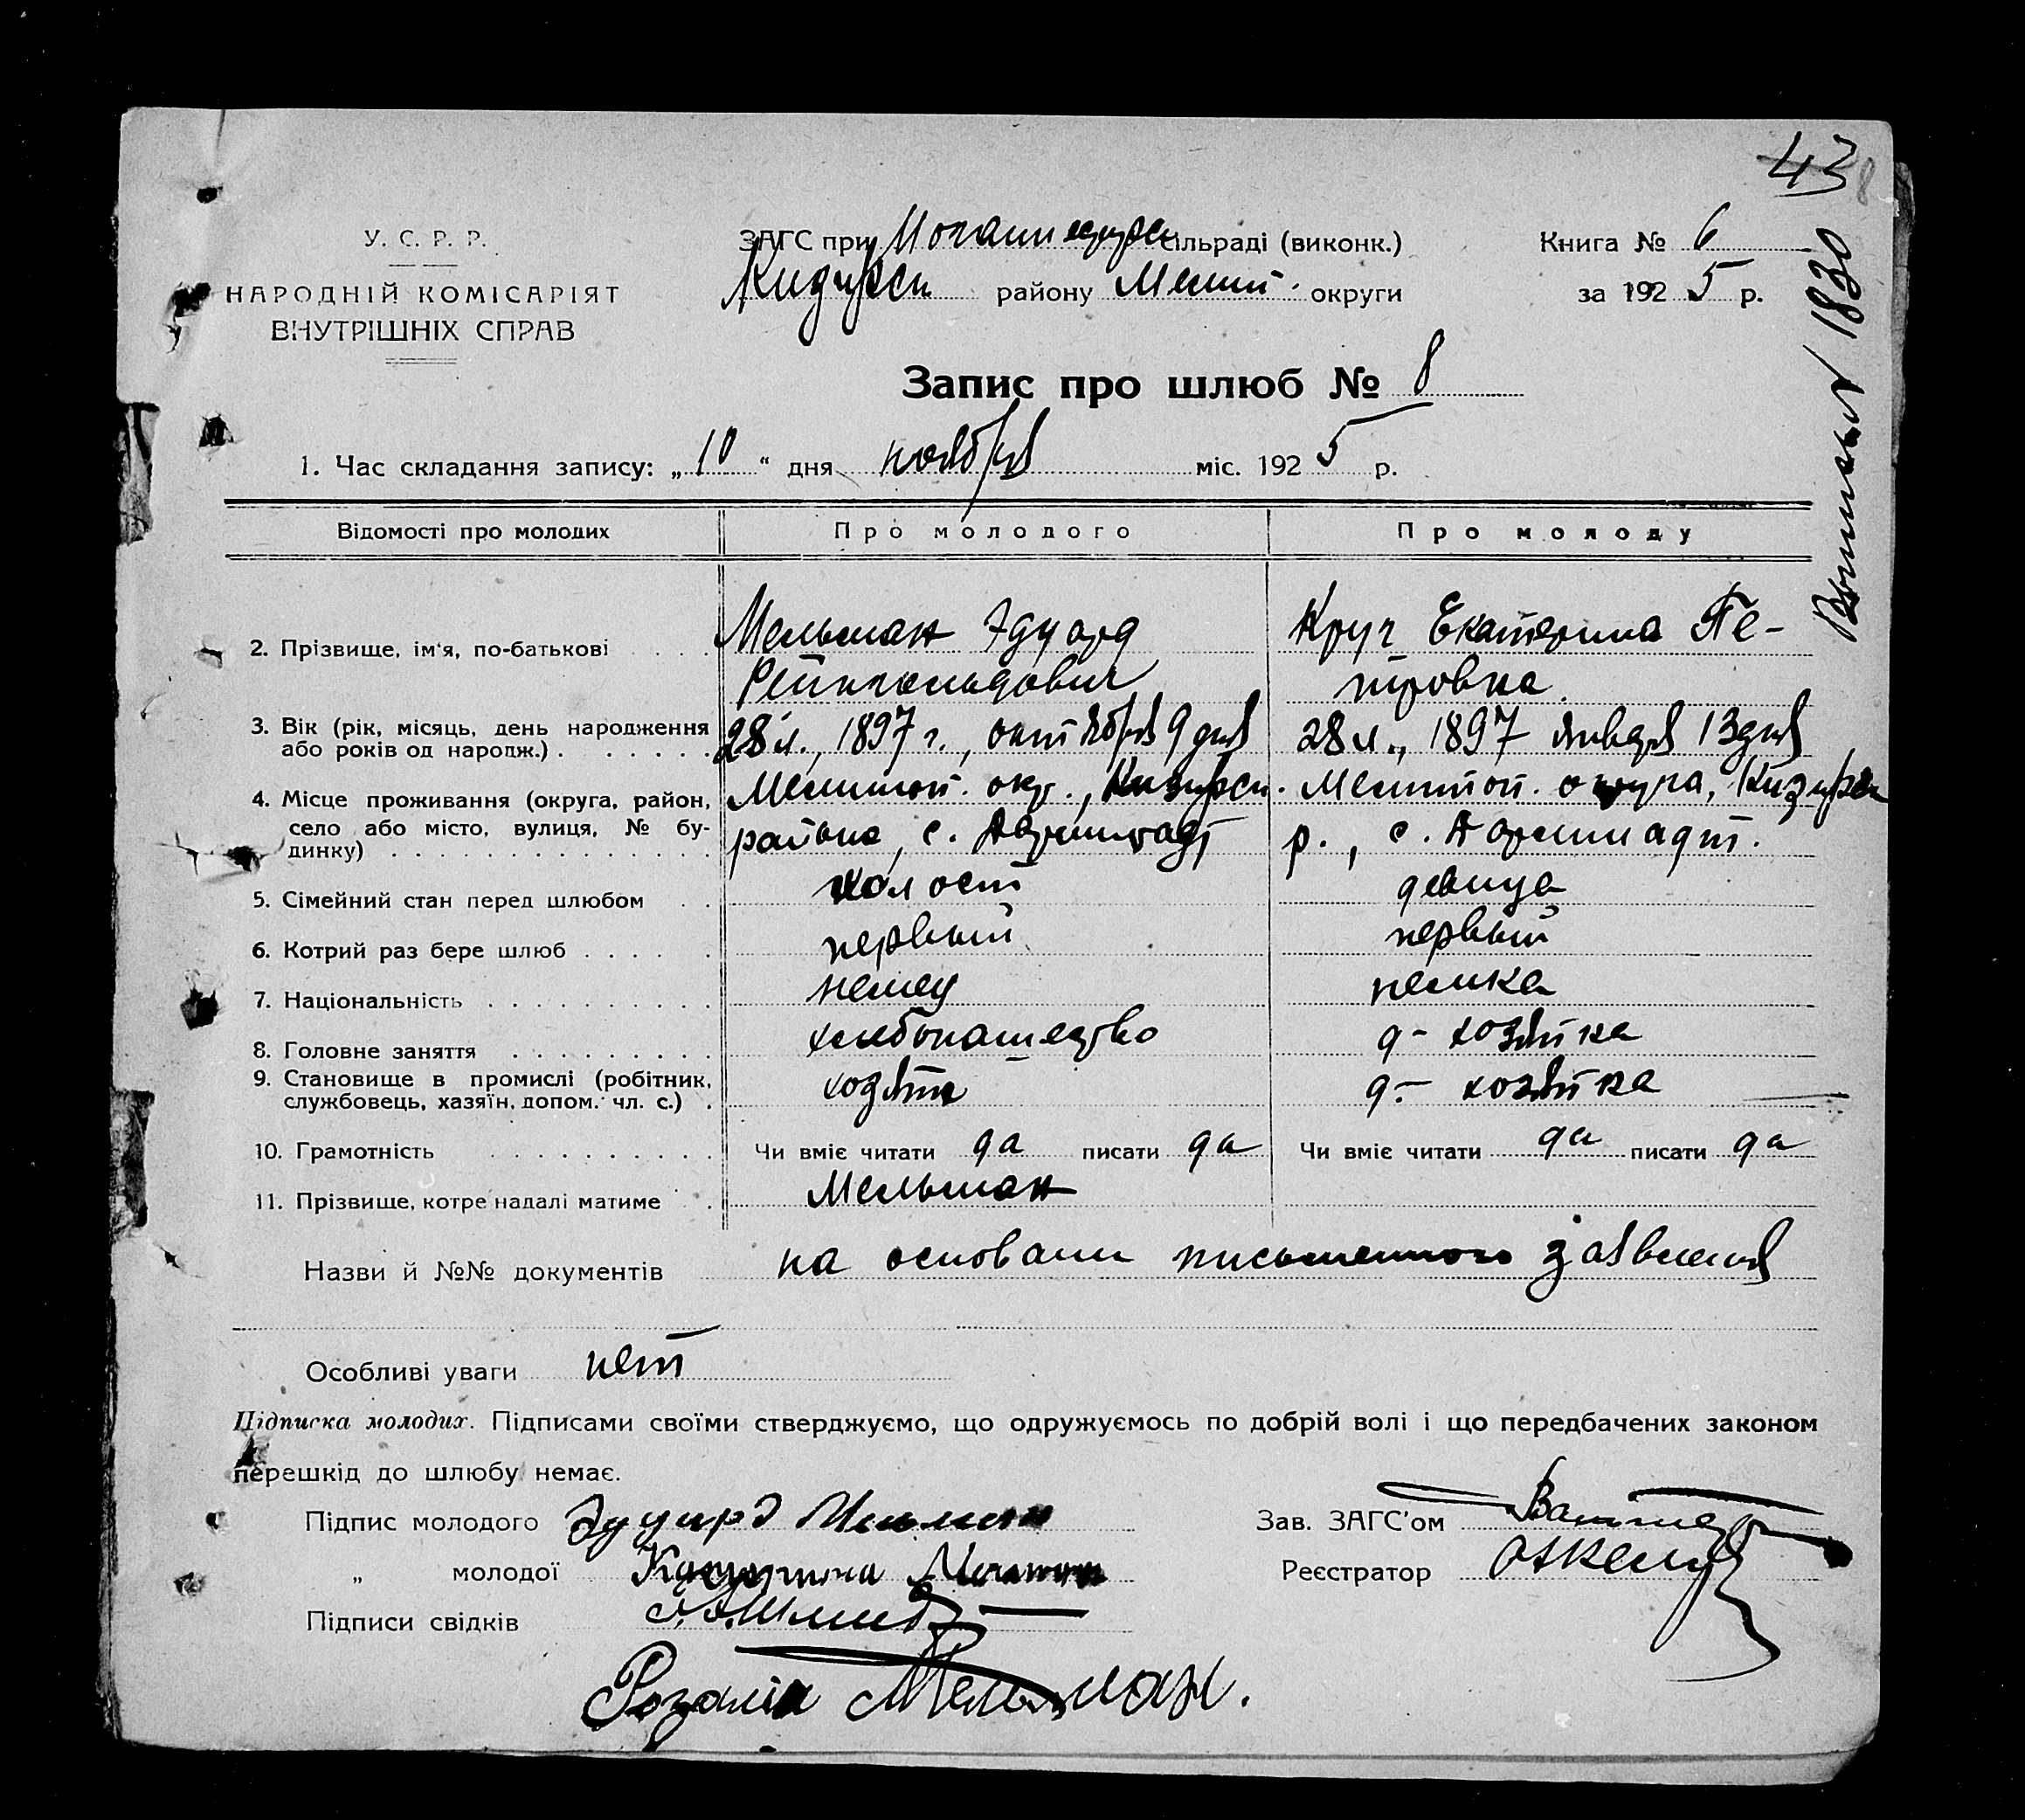 43
У. С. Р. Р.
НАРОДНІЙ КОМІСАРІЯТ
ВНУТРІШНІХ СПРАВ
ЗАГС при сільраді (виконк.)
району Мелит. округи
Книга № 6
за 1925 р.
1830
Запис про шлюб № 8
1. Час складання запису: „10“ дня ноября міс. 1925 р.
Відомості про молодих Про молодого Про молоду
2. Прізвище, ім'я, по-батькові Мельман Эдуард Круч Екатерина Пе-
Рейнгольдович тровна
3. Вік (рік, місяць, день народження 28 л., 1897 г., октября 9 дня 28 л., 1897 января 13 дня
або років од народж.)
4. Місце проживання (округа, район, Мелитоп. окр., Мелитоп. округа,
село або місто, вулиця, № бу- района, с. Дармштадт р., с. Дармштадт.
динку)
5. Сімейний стан перед шлюбом холост девица
6. Котрий раз бере шлюб первый первый
7. Національність немец немка
8. Головне заняття хлебопашество д-хозяйка
9. Становище в промислі (робітник, хозяин д.-хозяйка
службовець, хазяїн, допом. чл. с.)
10. Грамотність Чи вміє читати да писати да Чи вміє читати да писати да
11. Прізвище, котре надалі матиме Мельман
Назви й №№ документів на основани письменного заявления
Особливі уваги нет
Підписка молодих. Підписами своїми стверджуємо, що одружуємось по добрій волі і що передбачених законом
перешкід до шлюбу немає.
Підпис молодого Эдуард Мельман Зав. ЗАГС'ом
„ молодої Реєстратор
Підписи свідків
Розалія Мельман.